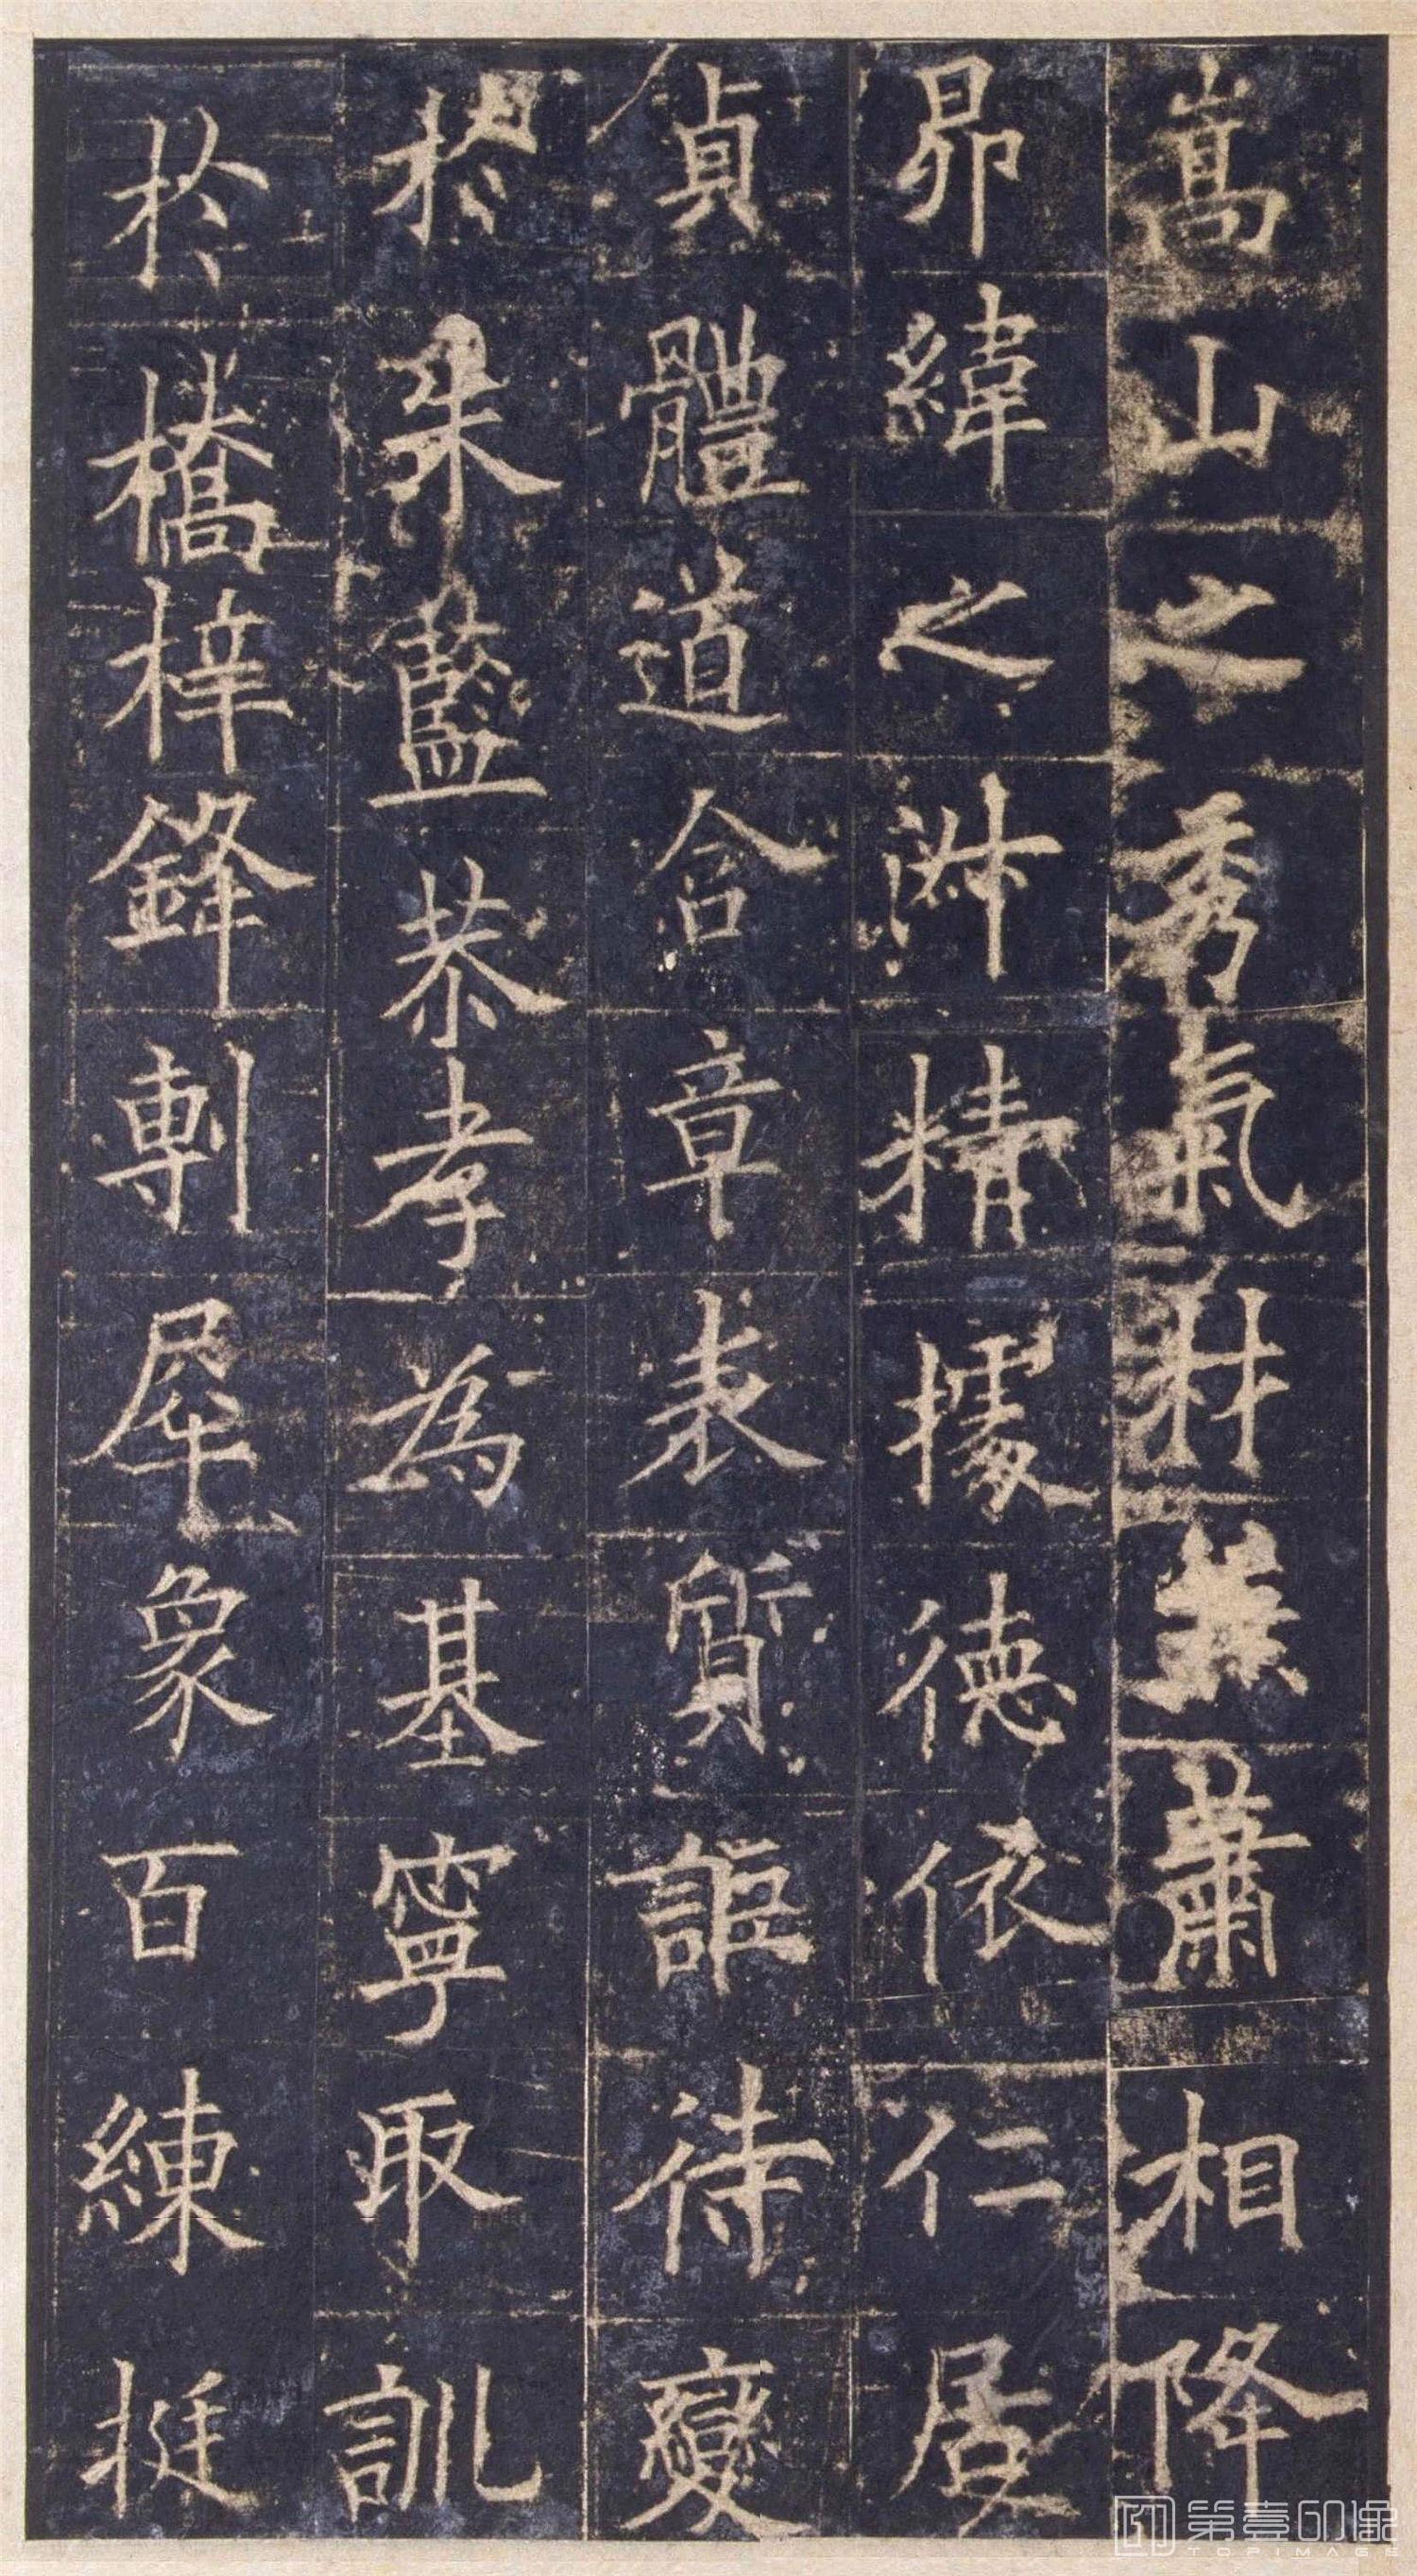 嵩山之秀氣材兼蕭相降
昴緯之淑精據德依仁居
貞體道含章表質詎待變
於朱藍恭孝為基寧取訓
於橋梓鋒剸犀象百練挺
第壹印像
TOPIMAGE